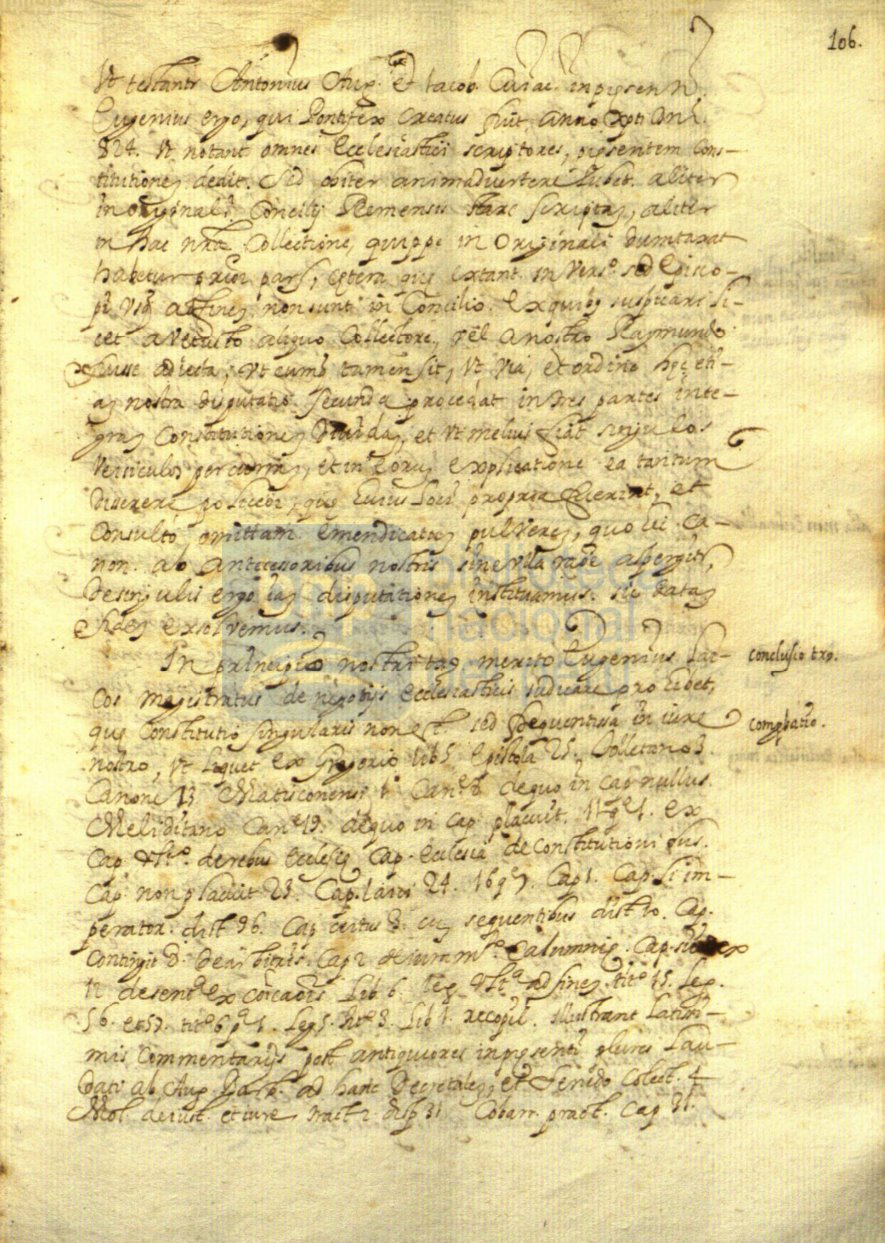 106.
Ut testantr Antonius Aug. et Iacob. Cuiac. in pręsenti.
Eugenius ergo, qui Pontifex creatus fuit anno Xpti Ml.
824. ut notant omnes Ecclesiastici scriptores, pręsentem Cons-
titutionẽ dedit. Sed obiter animadvertere lubet aliter
in originali Concilij Remensis stare scriptã, aliter
in hac nrã Collectione, quippe in originali dumtaxat
habetur prior pars, cętera quę extant in versº sed Episco-
pi usq̃ ad finẽ non sunt in Concilio. Ex quibus suspicari li-
cet a vetusto aliquo Collectore, vel a nostro Raymundo
fuisse adiecta, ut cumq̃ tamen sit, ut via, et ordine hęc eti-
ã nostra disputatio secunda procedat in tres partes inte-
grã Constitutionẽ dividã, et ut melius fiat singulos
versiculos percurrã, et in eorũ explicatione ea tantum
dicere quę huius loci propria fuerint, et
Consulto omittam emendicatos pulveres, quo hic Ca-
non ab Antecessoribus nostris sine ulla rãoe aspergitr,
De singulis ergo iã disputationẽ instituamus. sic datã
fidẽ exsolvemus.
In principio nostri tex. merito Eugenius lai-
conclusio tex.
cos magistratus de negotijs Ecclesiasticis iudicare prohibet,
quę Constitutio singularis non est sed frequentissa in iure
comprobatio.
nostro, ut liquet ex Gregorio lib 5 Epistola 25. Colletano 3.
Canone 13 Matisconensi 1º Canº 8 de quo in cap nullus.
Melibitano Canº 19. de quo in cap placuit. 11 qº 1. ex
Cap ultº. de rebus Ecclesię Cap. Ecclesia de Constitutionibus.
Cap non placuit 23. Cap. laici 24. 16 qº 7. Cap 1. Cap si im-
perator. dist 96. Cap certus 3. cũ sequentibus dist 10. Cap.
Contingit de arbitris. Cap 2 de iuramtº Calumnię. Cap
12 de sentª excõicaõis Lib 6. leg. ultª ad finẽ titº 15. Leg.
56. et 57. titº 6 pª 1. Leg 5. titº 3. Lib 1. recopil. illustrant latissi-
mis Commentarijs post antiquiores in pręsenti plures lau-
dati ab Aug Barb. ad hanc Decretalẽ, et Fenedo Colect. 4
Mol. de iust. et iure tract 2 disp 31 Cobarr. pract. Cap 31.
biblioteca
nacional
del perú